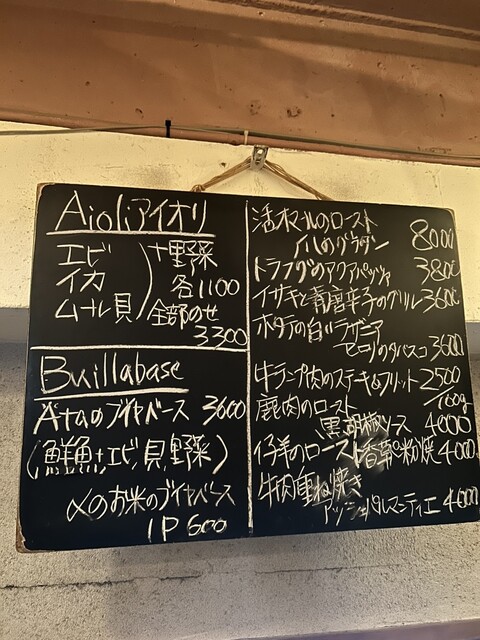 Aioli アイオリ
エビ
イカ
ムール貝
+野菜
各1100
全部のせ
3300
Buillabase
ブイヤベース 3600
(鮮魚+エビ,貝,野菜)
〆のお米のブイヤベース
1P 600
活オマールのロスト
グラタン 8000
トラフグのアクアパッツァ 3800
イサキと青唐辛子のグリル 3600
ホタテの白いラザニア
セロリのタバスコ 3600
牛ランプ肉のステーキ&フリット 2500
/160g
鹿肉のロスト
黒胡椒ソース 4000
仔羊のロースト香草パン粉焼 4000
牛肉重ね焼き
アッシェパルマンティエ 4600